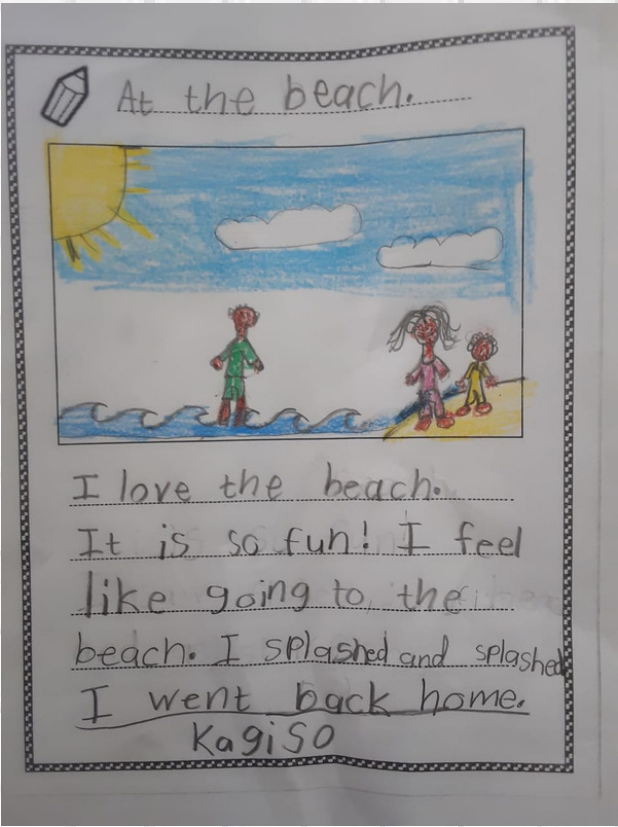 At the beach.
I love the beach.
It is so fun! I feel
like going to the
beach. I splashed and splashed
I went back home.
Kagiso